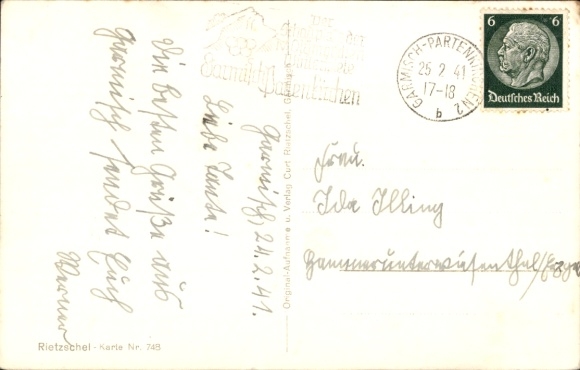 Garmisch, 24.2.41.
Liebe Tante!
Die besten Grüße aus
Garmisch sendet Euch
Werner
Rietzschel - Karte Nr. 748
Original-Aufnahme u. Verlag Curt Rietzschel, Garmisch
Garmisch-Partenkirchen
GARMISCH-PARTENKIRCHEN 2
25.2.41
17-18
b
6 6
Deutsches Reich
Frau.
Ida Illing
Hammerunterwiesenthal/Erzgeb